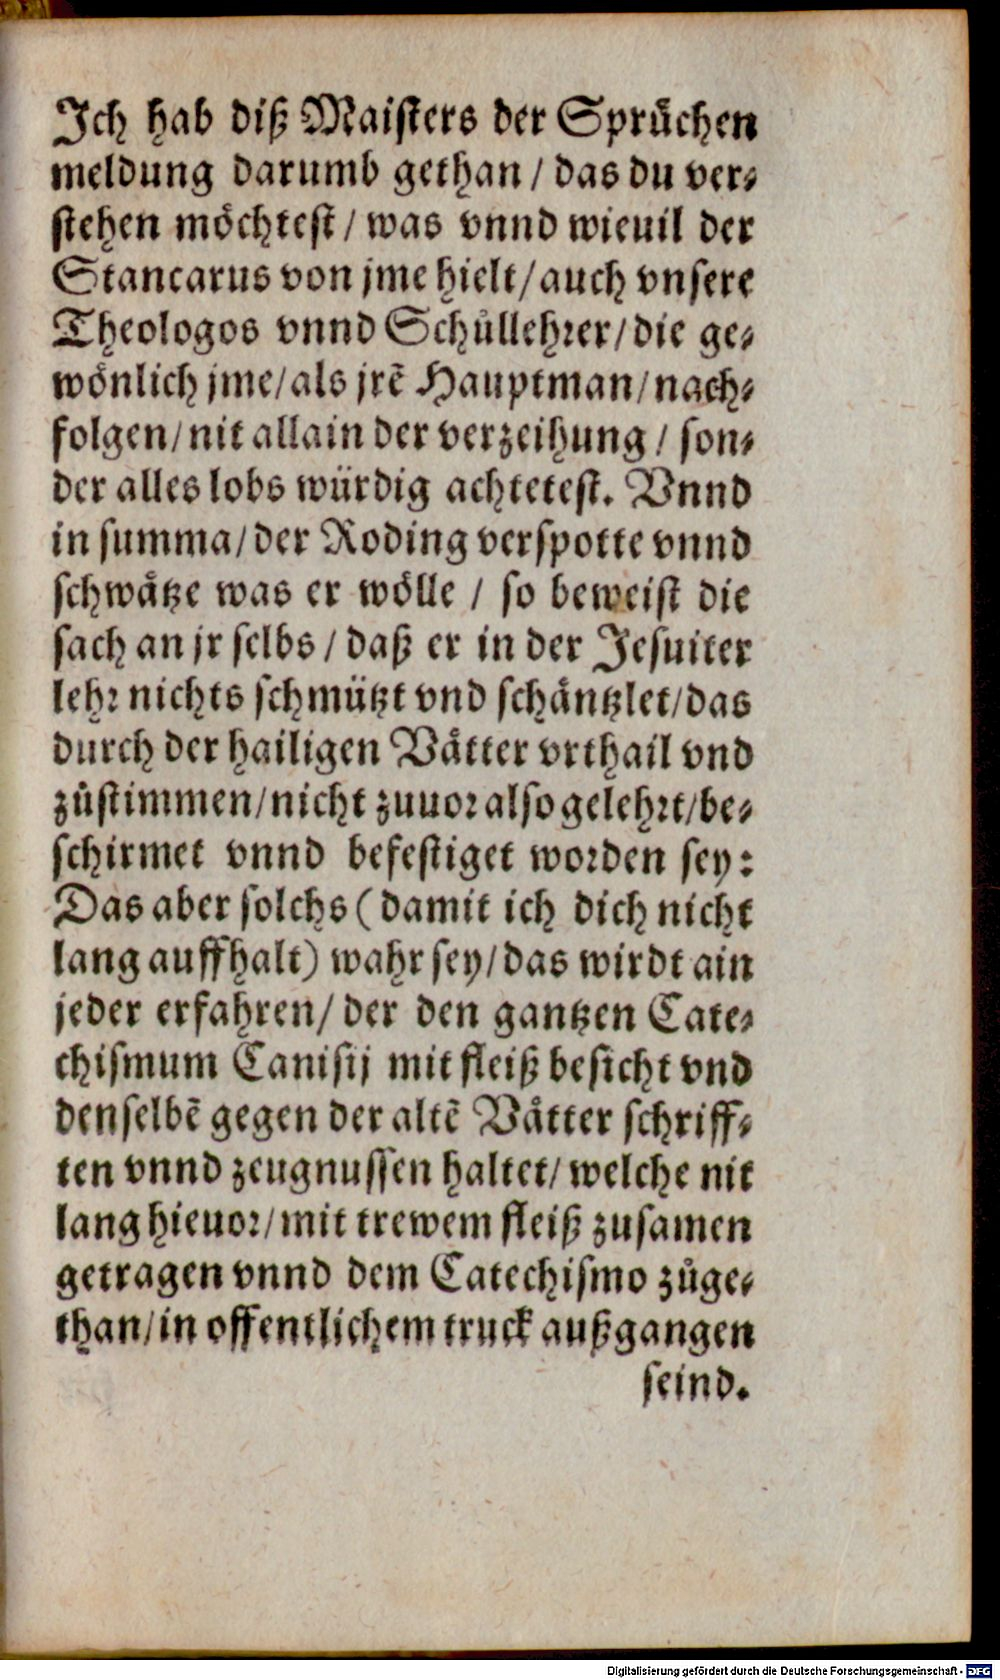 Ich hab diß Maisters der Sprüchen
meldung darumb gethan / das du ver⸗
stehen möchtest / was vnnd wieuil der
Stancarus von jme hielt / auch vnsere
Theologos vnnd Schůllehrer / die ge⸗
wönlich jme / als jrẽ Hauptman / nach⸗
folgen / nit allain der verzeihung / son⸗
der alles lobs würdig achtetest. Vnnd
in summa / der Roding verspotte vnnd
schwätze was er wölle / so beweist die
sach an jr selbs / daß er in der Jesuiter
lehr nichts schmützt vnd schäntzlet / das
durch der hailigen Vätter vrthail vnd
zůstimmen / nicht zuuor also gelehrt / be⸗
schirmet vnnd befestiget worden sey:
Das aber solchs ( damit ich dich nicht
lang auffhalt) wahr sey / das wirdt ain
jeder erfahren / der den gantzen Cate⸗
chismum Canisij mit fleiß besicht vnd
denselbẽ gegen der altẽ Vätter schriff⸗
ten vnnd zeugnussen haltet / welche nit
lang hieuor / mit trewem fleiß zusamen
getragen vnnd dem Catechismo zůge⸗
than / in offentlichem truck außgangen
seind.
Digitalisierung gefördert durch die Deutsche Forschungsgemeinschaft - DFG